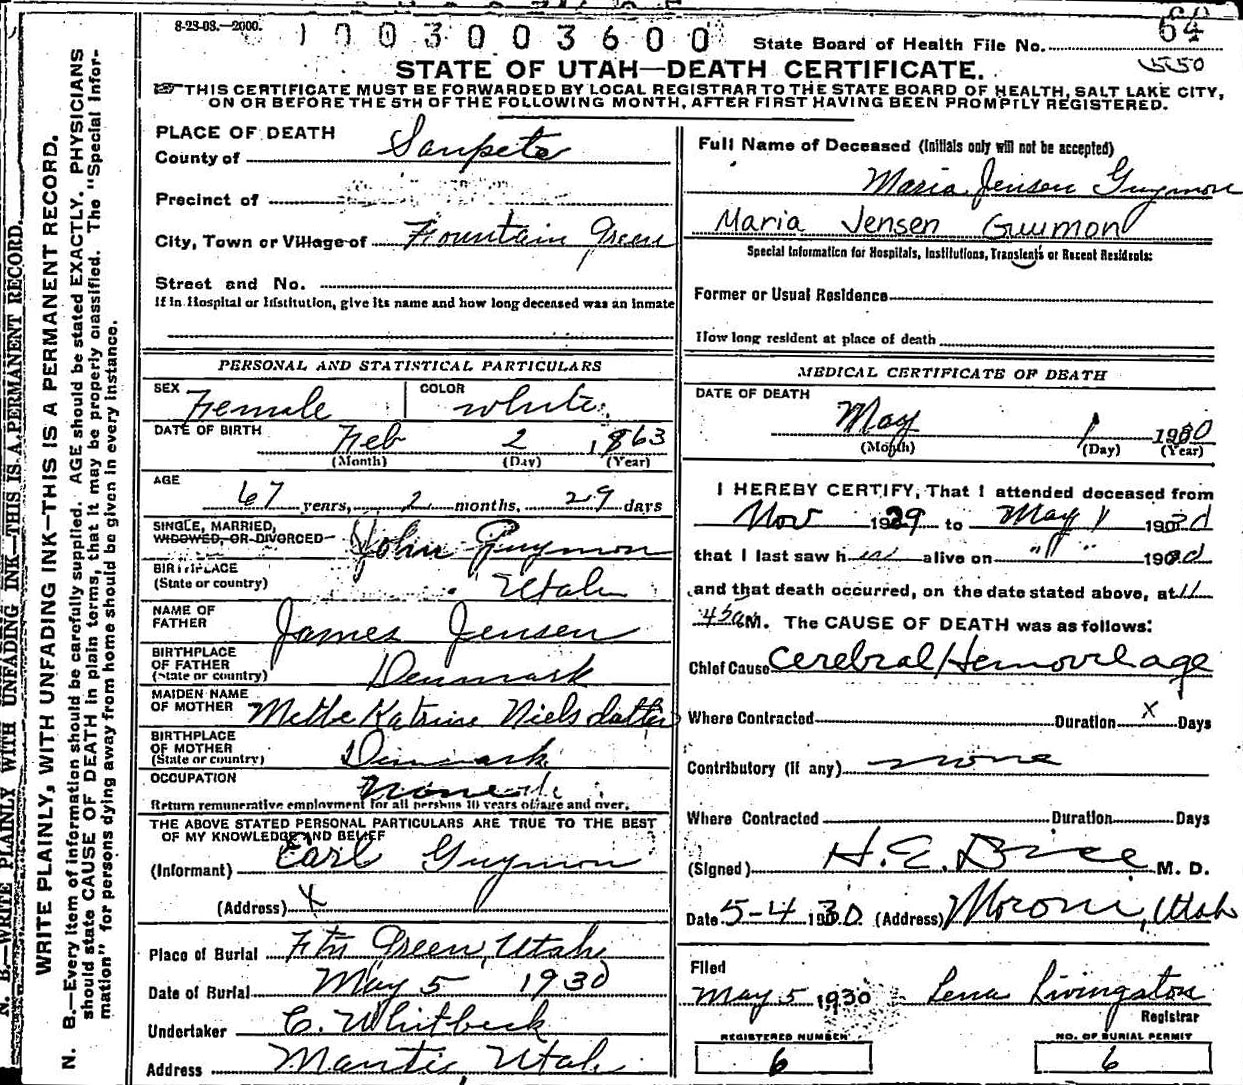 8-23-08.—2000.
1003003600
State Board of Health File No. 64
550
STATE OF UTAH—DEATH CERTIFICATE.
THIS CERTIFICATE MUST BE FORWARDED BY LOCAL REGISTRAR TO THE STATE BOARD OF HEALTH, SALT LAKE CITY,
ON OR BEFORE THE 5TH OF THE FOLLOWING MONTH, AFTER FIRST HAVING BEEN PROMPTLY REGISTERED.
N. B.—WRITE PLAINLY WITH UNFADING INK—THIS IS A PERMANENT RECORD.
WRITE PLAINLY, WITH UNFADING INK—THIS IS A PERMANENT RECORD.
N. B.—Every item of information should be carefully supplied. AGE should be stated EXACTLY. PHYSICIANS
should state CAUSE OF DEATH in plain terms, that it may be properly classified. The "Special Infor-
mation" for persons dying away from home should be given in every instance.
PLACE OF DEATH
County of Sanpete
Precinct of
City, Town or Village of Fountain Green
Street and No.
If in Hospital or Institution, give its name and how long deceased was an inmate
PERSONAL AND STATISTICAL PARTICULARS
SEX Female COLOR white
DATE OF BIRTH Feb 2 1863
(Month) (Day) (Year)
AGE
67 years, 2 months, 29 days
SINGLE, MARRIED,
WIDOWED, OR DIVORCED John Guymon
BIRTHPLACE
(State or country) Utah
NAME OF
FATHER James Jensen
BIRTHPLACE
OF FATHER
(State or country) Denmark
MAIDEN NAME
OF MOTHER Mette Katrine Nielsdatter
BIRTHPLACE
OF MOTHER
(State or country) Denmark
OCCUPATION None
Return remunerative employment for all persons 10 years of age and over.
THE ABOVE STATED PERSONAL PARTICULARS ARE TRUE TO THE BEST
OF MY KNOWLEDGE AND BELIEF
(Informant) Earl Guymon
(Address) X
Place of Burial Ftn Green, Utah
Date of Burial May 5 1930
Undertaker C. Whitbeck
Address Manti, Utah
Full Name of Deceased (Initials only will not be accepted)
Maria Jensen Guymon
Maria Jensen Guymon
Special Information for Hospitals, Institutions, Transients or Recent Residents:
Former or Usual Residence
How long resident at place of death
MEDICAL CERTIFICATE OF DEATH
DATE OF DEATH
May 1 1930
(Month) (Day) (Year)
I HEREBY CERTIFY, That I attended deceased from
Nov 1929 to May 1 1930
that I last saw her alive on " 11 " 1930
and that death occurred, on the date stated above, at 11
45a M. The CAUSE OF DEATH was as follows:
Chief Cause Cerebral Hemorrhage
Where Contracted Duration X Days
Contributory (if any) none
Where Contracted Duration Days
(Signed) H. E. Dice M. D.
Date 5-4 1930 (Address) Moroni, Utah
Filed
May 5 1930 Lena Livingston
Registrar
REGISTERED NUMBER
6
NO. OF BURIAL PERMIT
6